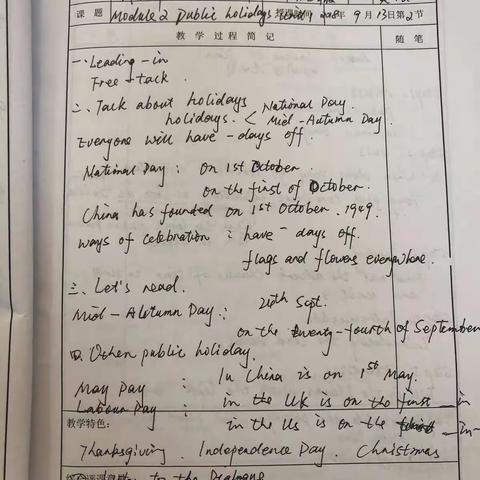 课 题 Module 2 Public holidays Unit 1 授课时间 2018年 9月13日第2节
教 学 过 程 简 记 随 笔
一、Leading-in
Free-tack.
二、Talk about holidays
holidays. < National Day.
Mid-Autumn Day.
Everyone will have - days off.
National Day: on 1st October.
on the first of October.
China has founded on 1st October. 1949.
ways of celebration: have - days off.
flags and flowers everywhere.
三、Let's read.
Mid-Autumn Day: 24th Sept.
on the twenty-fourth of September
四、Other public holiday.
May Day : In China is on 1st May.
Labour Day : in the UK is on the first _ in
in the US is on the _ in
教学特色:
Thanksgiving. Independence Day. Christmas
to the Dialogue